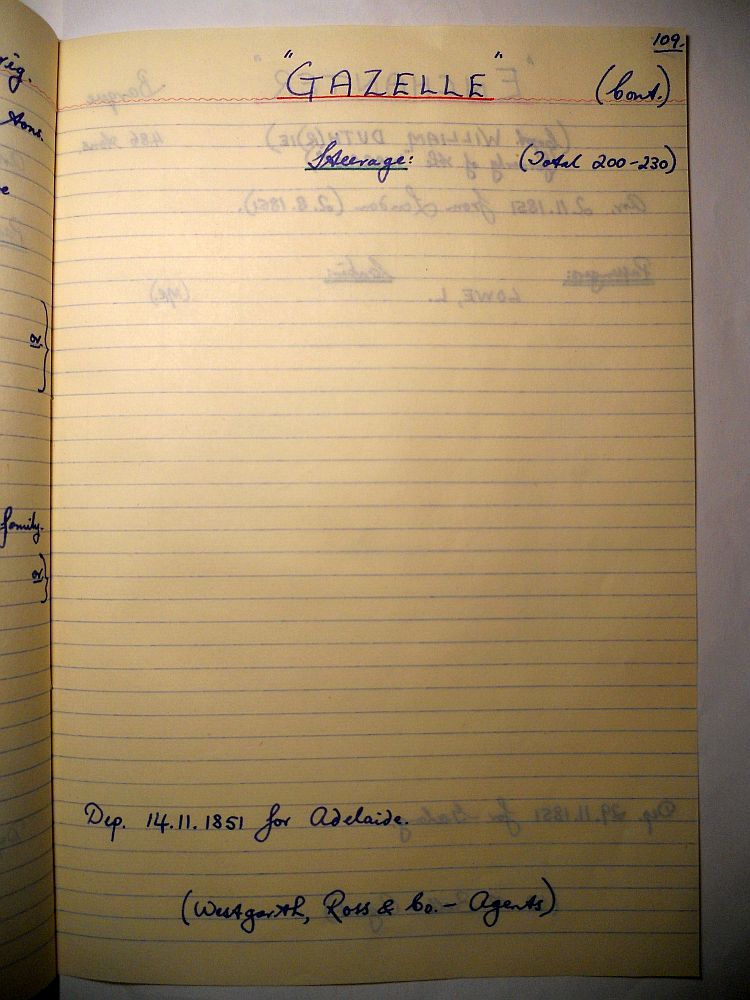 109.
"GAZELLE" (Cont.)
Steerage: (Total 200-230)
Dep. 14.11.1851 for Adelaide.
(Westgarth, Ross & Co. - Agents)
rig.
tons.
or
family.
or